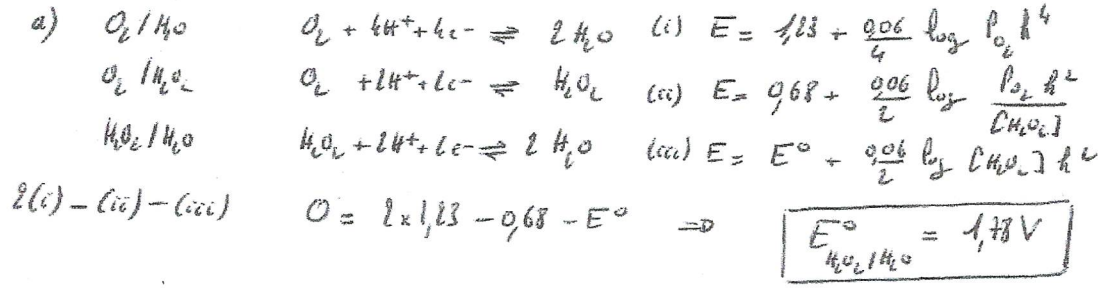 a) O₂/H₂O O₂ + 4H⁺ + 4e⁻ ⇌ 2 H₂O (i) E = 1,23 + 0,06/4 log P_O₂ h⁴
O₂/H₂O₂ O₂ + 2H⁺ + 2e⁻ ⇌ H₂O₂ (ii) E = 0,68 + 0,06/2 log P_O₂ h²/[H₂O₂]
H₂O₂/H₂O H₂O₂ + 2H⁺ + 2e⁻ ⇌ 2 H₂O (iii) E = E° + 0,06/2 log [H₂O₂] h²
2(i) - (ii) - (iii) 0 = 2 × 1,23 - 0,68 - E° ⇒ E°_H₂O₂/H₂O = 1,78 V